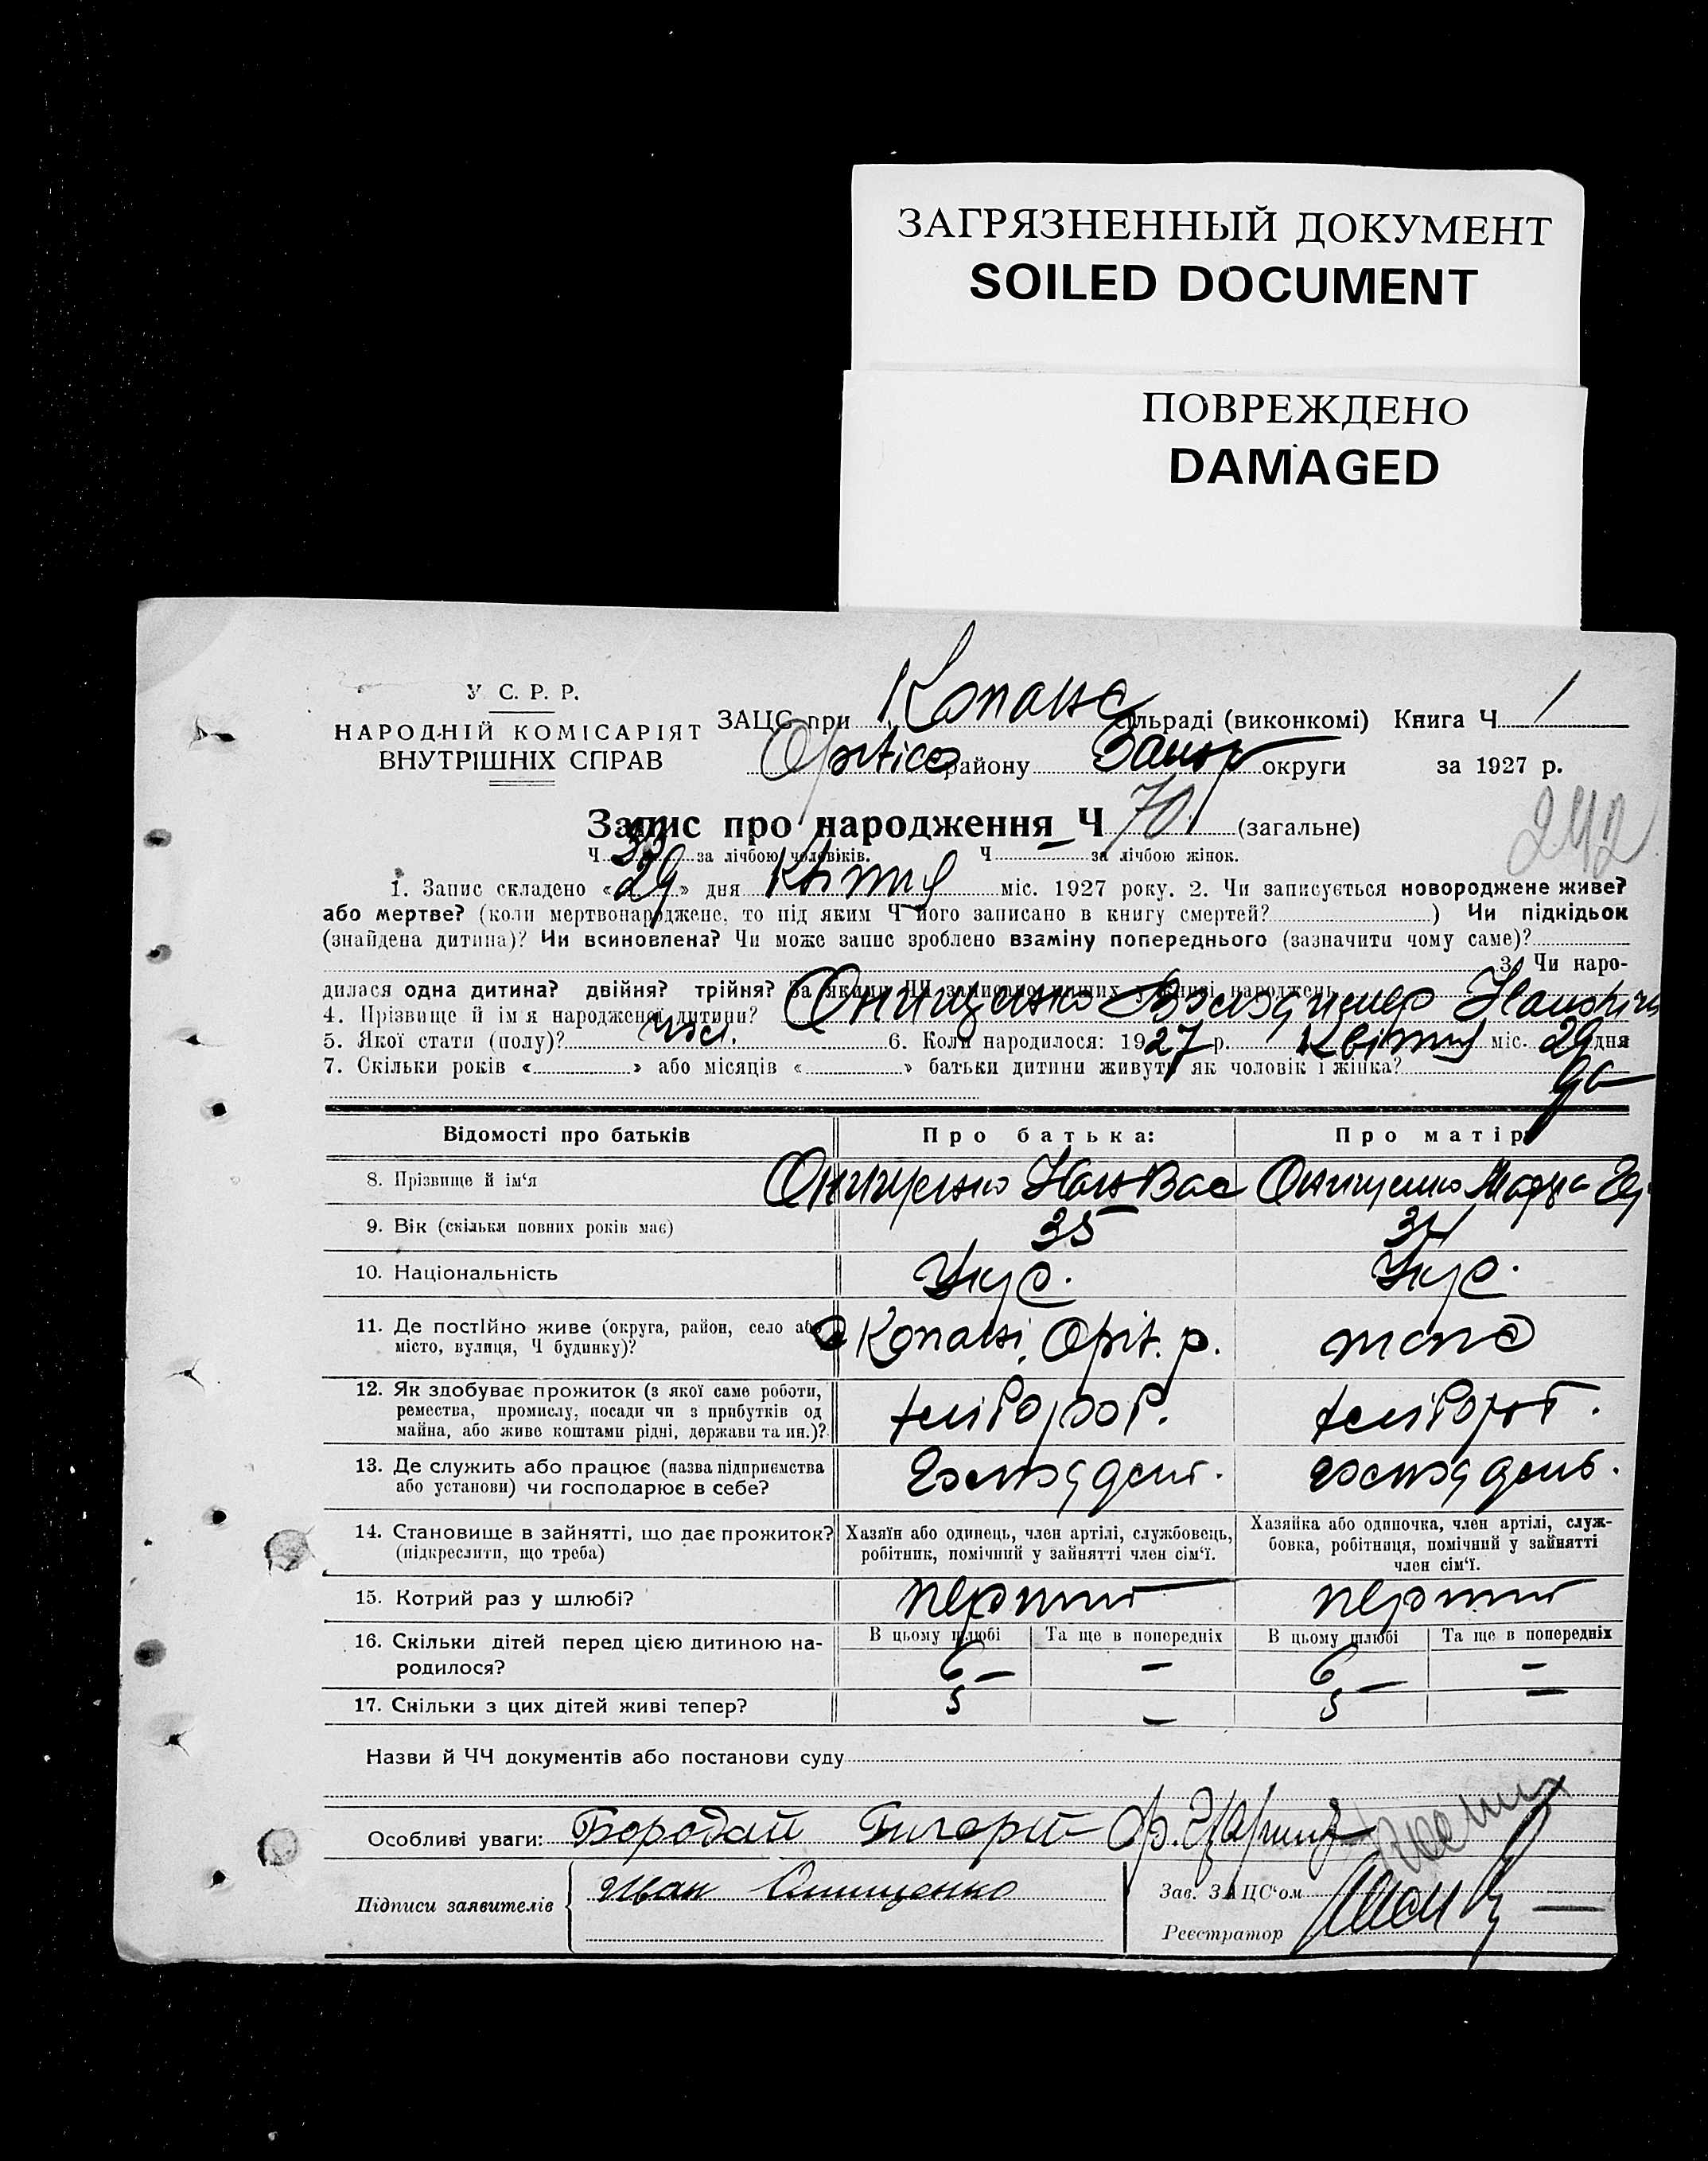 ЗАГРЯЗНЕННЫЙ ДОКУМЕНТ
SOILED DOCUMENT
ПОВРЕЖДЕНО
DAMAGED
У С. Р. Р.
НАРОДНІЙ КОМІСАРІЯТ
ВНУТРІШНІХ СПРАВ
ЗАЦС при Копанс сільраді (виконкомі) Книга Ч 1
Оріхівс району Запор округи за 1927 р.
Запис про народження Ч 70 (загальне)
242
Ч 33 за лічбою чоловіків. Ч — за лічбою жінок.
1. Запис складено «29» дня Квітня міс. 1927 року. 2. Чи записується новороджене живе?
або мертве? (коли мертвонароджене, то під яким Ч його записано в книгу смертей? ) Чи підкідьок
(знайдена дитина)? Чи всиновлена? Чи може запис зроблено взаміну попереднього (зазначити чому саме)?
3. Чи наро-
дилася одна дитина? двійня? трійня? За якими ЧЧ записано инших у книзі народжень
4. Прізвище й ім'я народженої дитини? Онищенко Володимир Іванович
5. Якої стати (полу)? чол. 6. Коли народилося: 1927 р. Квітня міс. 29 дня
7. Скільки років « » або місяців « » батьки дитини живуть як чоловік і жінка?
Відомості про батьків Про батька: Про матір
8. Прізвище й ім'я Онищенко Іван Вас Онищенко Марія
9. Вік (скільки повних років має) 35
10. Національність Укр. Укр.
11. Де постійно живе (округа, район, село або
місто, вулиця, Ч будинку)? с Копані, Оріх. р. тоже
12. Як здобуває прожиток (з якої саме роботи,
ремества, промислу, посади чи з прибутків од
майна, або живе коштами рідні, держави та ин.)? хлібороб. хлібороб.
13. Де служить або працює (назва підприємства
або установи) чи господарює в себе?
14. Становище в зайнятті, що дає прожиток?
(підкреслити, що треба)
Хазяїн або одинець, член артілі, службовець,
робітник, помічний у зайнятті член сім'ї.
Хазяйка або одиночка, член артілі, служ-
бовка, робітниця, помічний у зайнятті
член сім'ї.
15. Котрий раз у шлюбі? перший перший
16. Скільки дітей перед цією дитиною на-
родилося?
В цьому шлюбі Та ще в попередніх В цьому шлюбі Та ще в попередніх
6 — — 6 — —
17. Скільки з цих дітей живі тепер? 5 — 5 —
Назви й ЧЧ документів або постанови суду
Особливі уваги: Бородай
Підписи заявителів Иван Онищенко
Зав. ЗАЦС'ом
Реєстратор